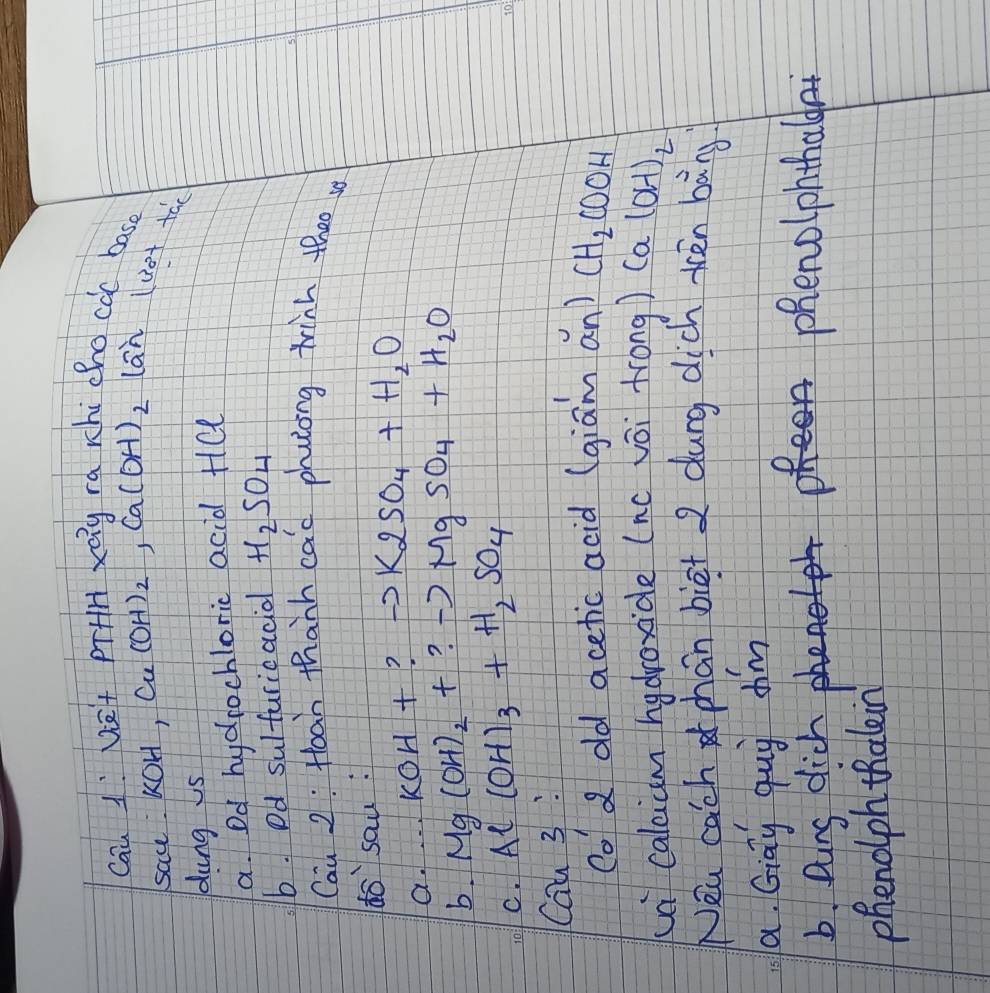 Câu 1: Viết PTHH xảy ra khi cho các base
sau: KOH, Cu(OH)2, Ca(OH)2 lần lượt tác
dụng vs
a. Dd hydrochloric acid HCl
b. Dd sulfuric acid H2SO4
Câu 2: Hoàn thành các phương trình theo sơ
đồ sau:
a. ... KOH + ? -> K2SO4 + H2O
b. Mg(OH)2 + ? -> MgSO4 + H2O
c. Al(OH)3 + H2SO4
Câu 3:
Có 2 dd acetic acid (giấm ăn) CH2COOH
và calcium hydroxide (nc vôi trong) Ca(OH)2
Nêu cách phân biệt 2 dung dịch trên bằng:
a. Giấy quỳ tím
b. Dung dịch phenolph pheon phenolphthalei
phenolphthalein
10
5
5
10
15